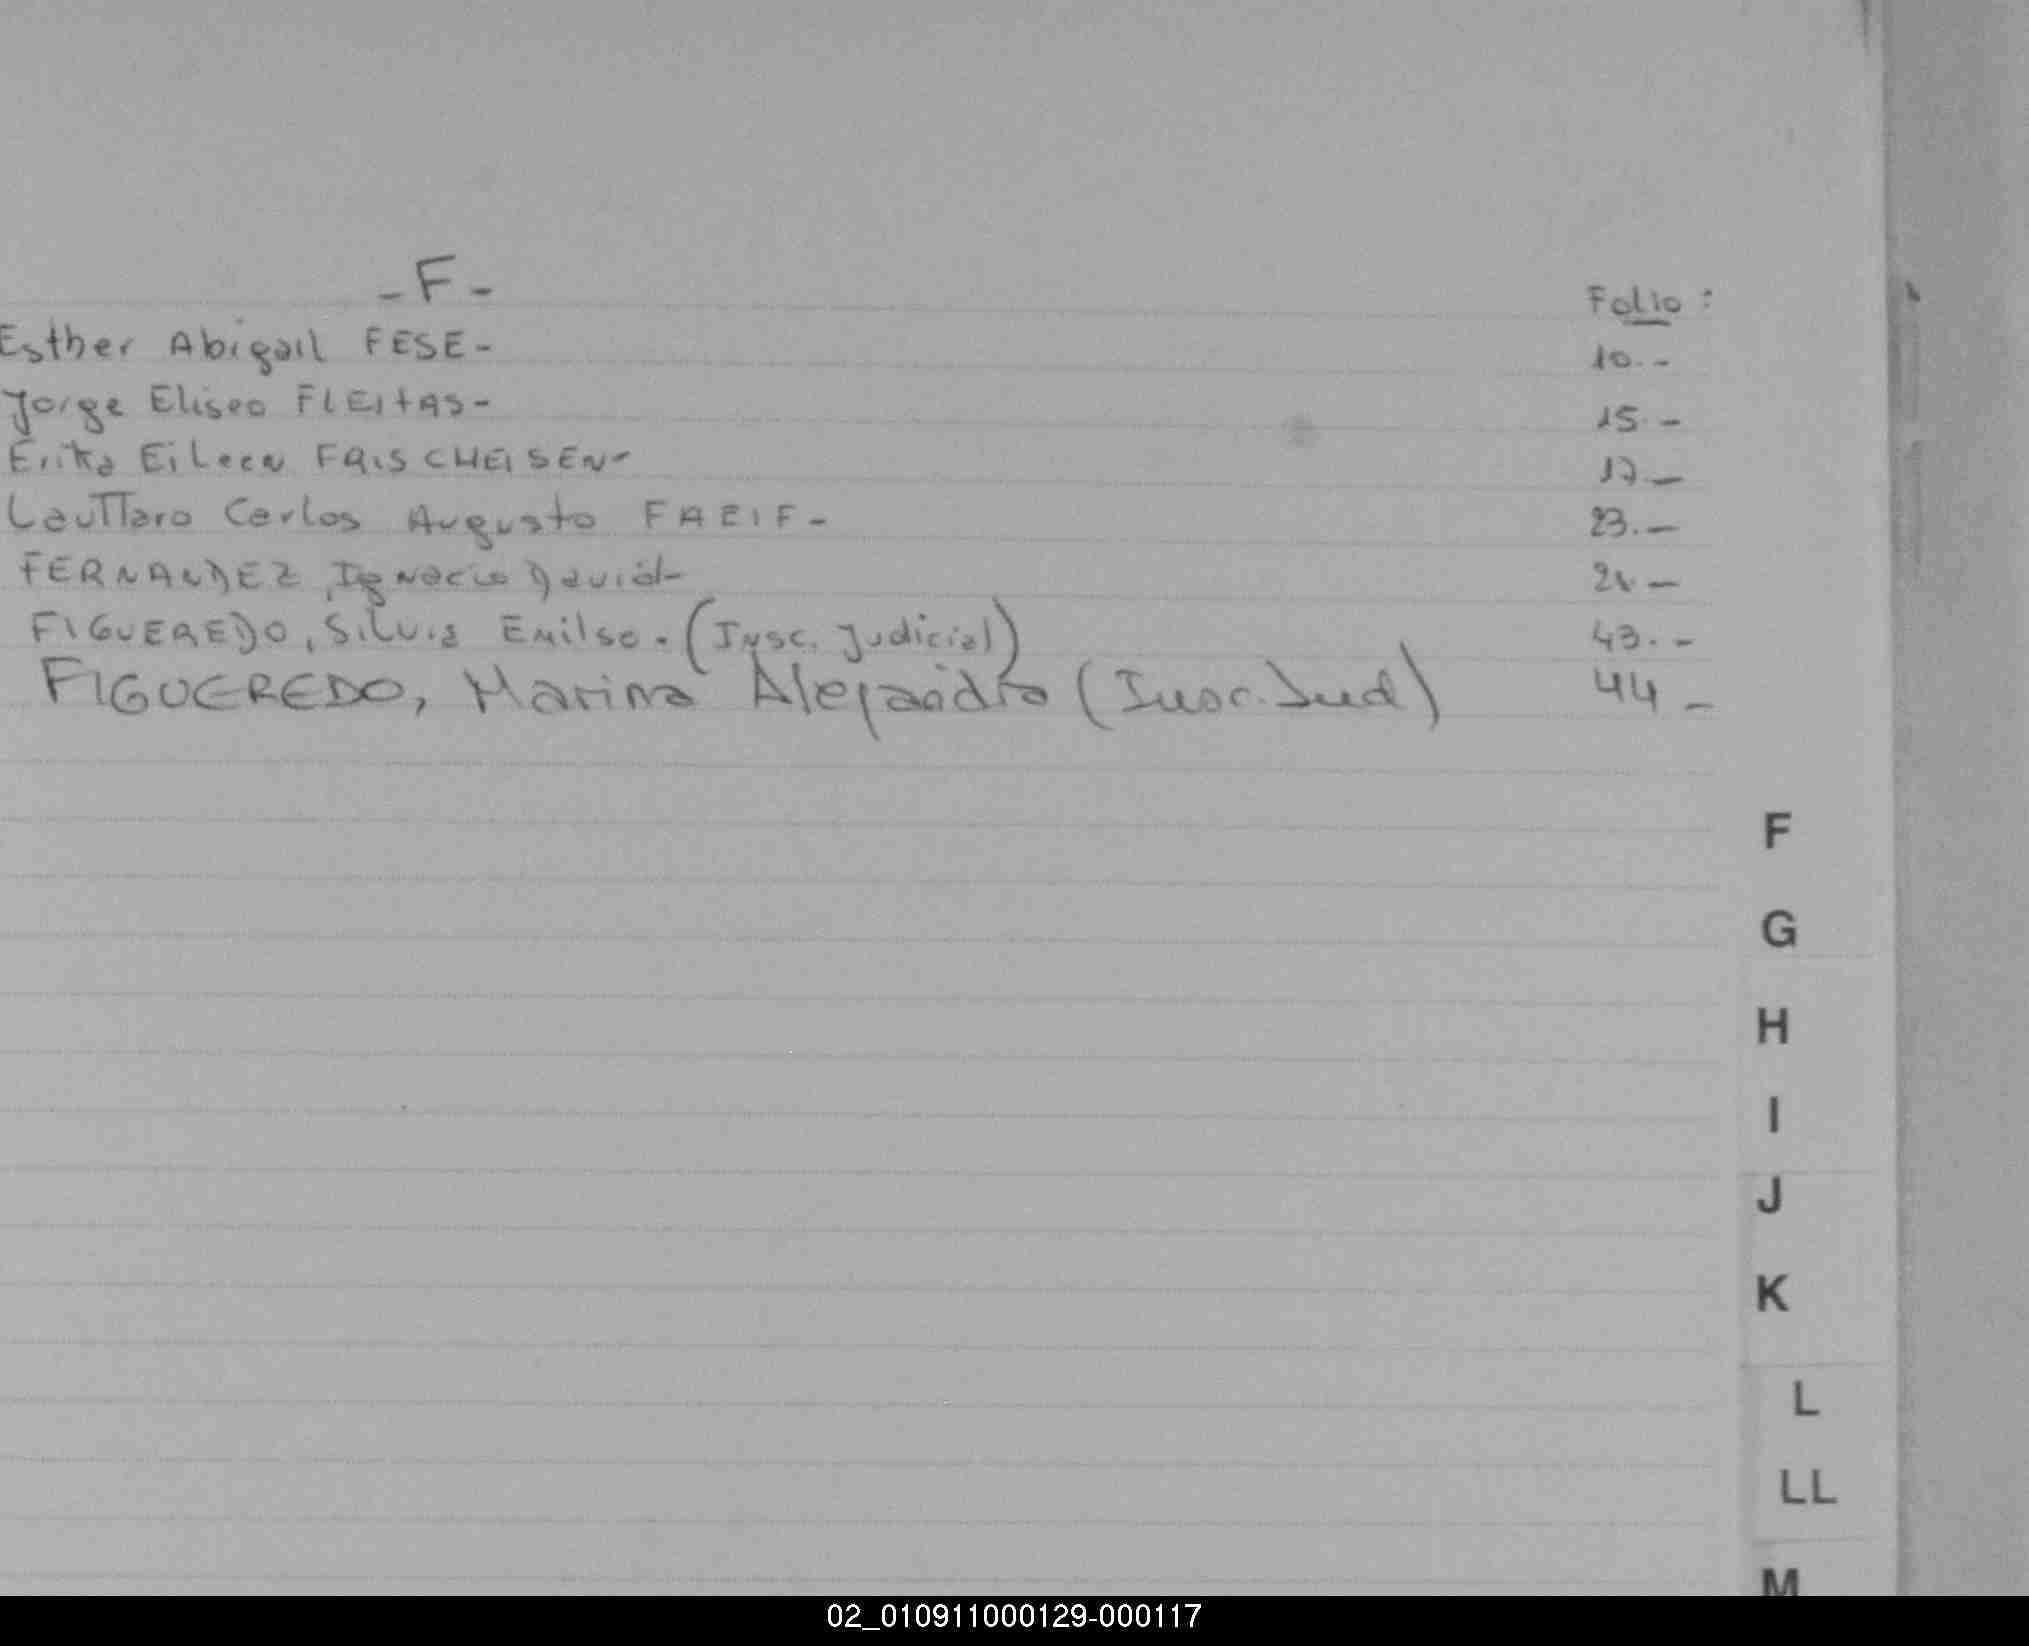 -F-
Folio:
Esther Abigail FESE- 10.-
Jorge Eliseo FLEITAS- 15.-
Erika Eileen FRISCHEISEN- 17-
LauTTaro Carlos Augusto FREIF- 23.-
FERNANDEZ, Ignacio David-
FIGUEREDO, Silvia Emilse. (Insc. Judicial) 43.-
FIGUEREDO, Marina Alejandra (Insc. Jud) 44-
F
G
H
I
J
K
L
LL
M
02_010911000129-000117